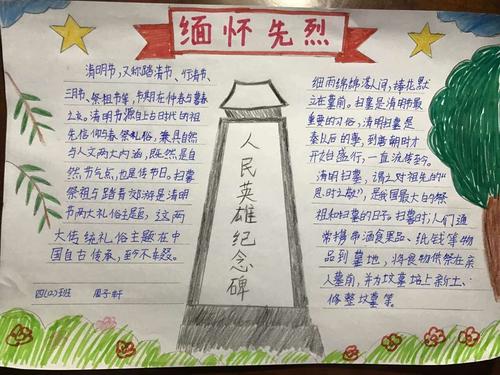 缅怀先烈
清明节,又称踏清节、行清节、
三月节、祭祖节等,节期在仲春与暮春
之交。清明节源自上古时代的祖
先信仰与春祭礼俗,兼具自然
与人文两大内涵,既然是自
然节气点,也是传节日。扫墓
祭祖与踏青郊游是清明
节两大礼俗主题,这两
大传统礼俗主题在中
国自古传承,至今不辍。
四(2)班 周子轩
人民英雄纪念碑
细雨绵绵落人间,捧花默
立在墓前。扫墓是清明节最
重要的习俗,清明扫墓是
秦以后的事,到唐朝时才
开始盛行,一直流传至今。
清明扫墓,谓之对祖先的“
思时之敬”,是我国最大的祭
祖和扫墓的日子。扫墓时,人们通
常携带酒食果品、纸钱等物
品到墓地,将食物供祭在亲
人墓前,并为坟墓培上新土、
修整坟墓等。